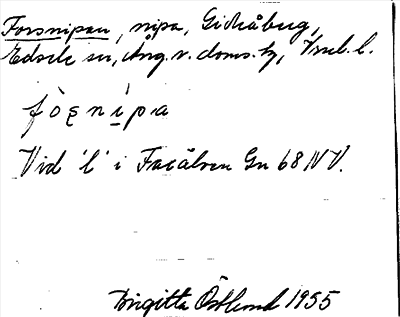 Forsnipan, nipa, Gideåberg,
Edsele sn, Ång. v. doms. tg, Vnrl. l.
fòȩnípa
Vid 'l' i Faxälven Gn 68 NV.
Birgitta Östlund 1955